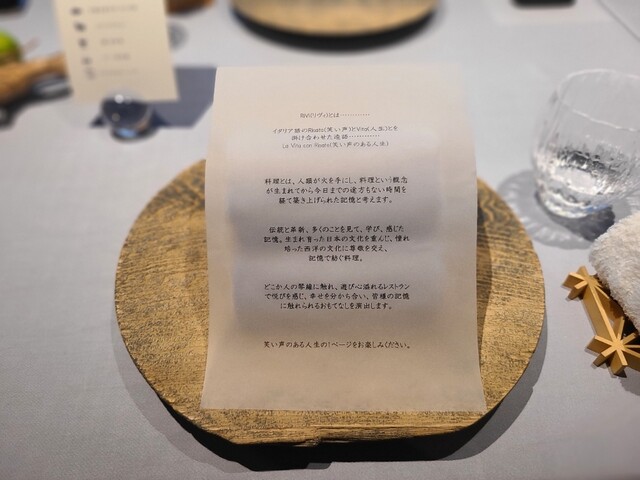 RiVi(リヴィ)とは…………
イタリア語のRisata(笑い声)とVita(人生)とを
掛け合わせた造語…………
La Vita con Risata(笑い声のある人生)
料理とは、人類が火を手にし、料理という概念
が生まれてから今日までの途方もない時間を
経て築き上げられた記憶と考えます。
伝統と革新、多くのことを見て、学び、感じた
記憶。生まれ育った日本の文化を重んじ、憧れ
培った西洋の文化に尊敬を交え、
記憶で紡ぐ料理。
どこか人の琴線に触れ、遊び心溢れるレストラン
で悦びを感じ、幸せを分かち合い、皆様の記憶
に触れられるおもてなしを演出します。
笑い声のある人生の1ページをお楽しみください。